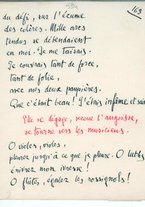 163
du défi, sur l'écume
des colères. Mille arcs
tendus se détendaient
en moi. Je me taisais.
Je couvrais tant de force,
tant de folie,
avec mes deux paupières.
Que c'était beau! J'étais infâme et sain
Elle se dégage, recule l'angoisse,
se tourne vers les musiciens.
O violes, violes,
pleurez jusqu'à ce que je pleure. O luths
énivrez mon ivresse!
O flûtes, égalez les rossignols!